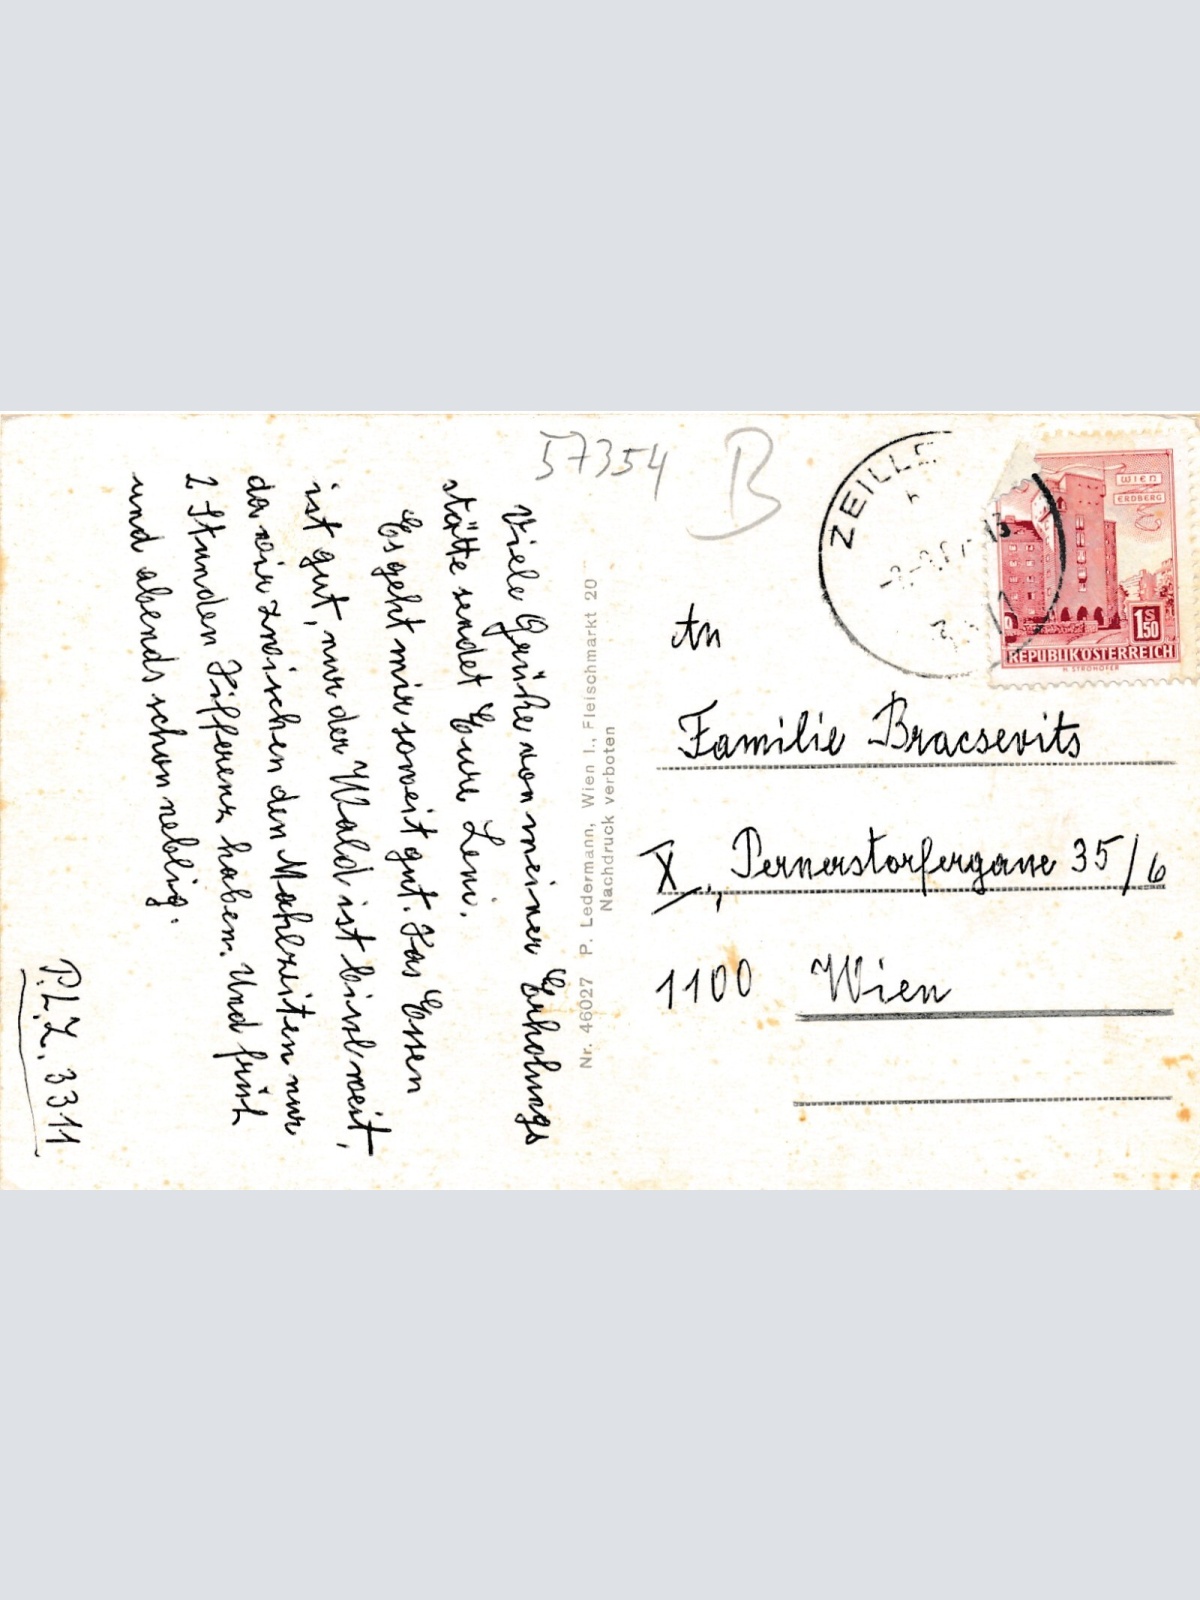 57354 B
ZEILLE
WIEN
ERDBERG
1 S 50
REPUBLIK ÖSTERREICH
H. STROHOFER
Viele Grüße von meiner Erholungs
stätte sendet Eure Leni.
Es geht mir soweit gut. Das Essen
ist gut, nur der Wald ist bissl weit,
da wir zwischen den Mahlzeiten nur
2 Stunden Differenz haben. Und früh
und abends schon neblig.
P.L.Z. 3311
Nr. 46027 P. Ledermann, Wien I., Fleischmarkt 20
Nachdruck verboten
An
Familie Bracsevits
X., Pernerstorfergasse 35/6
1100 Wien